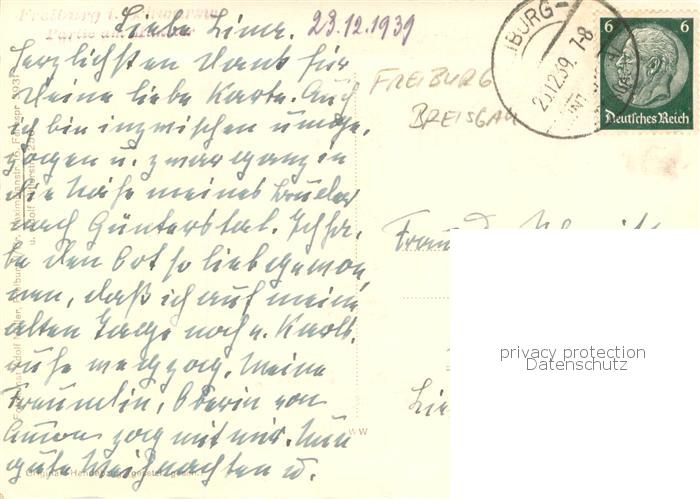 Freiburg i.
Partie am
Liebe Lina. 23.12.1939
Herzlichsten Dank für
Deine liebe Karte. Auch
ich bin inzwischen umge,
zogen u. zwar ganz in
die Nähe meines Bruders
nach Günterstal. Ich ha,
be den Ort so liebgewon
nen, daß ich auf meine
alten Tage noch v. Karls,
ruhe wegzog. Meine
Freundin, Oberin von
zog mit mir. Nun
gute Weihnachten u.
FREIBURG
BREISGAU
IBURG-
23.12.39. 7-8
6 6
Deutsches Reich
Frau
Lie
WW
privacy protection
Datenschutz